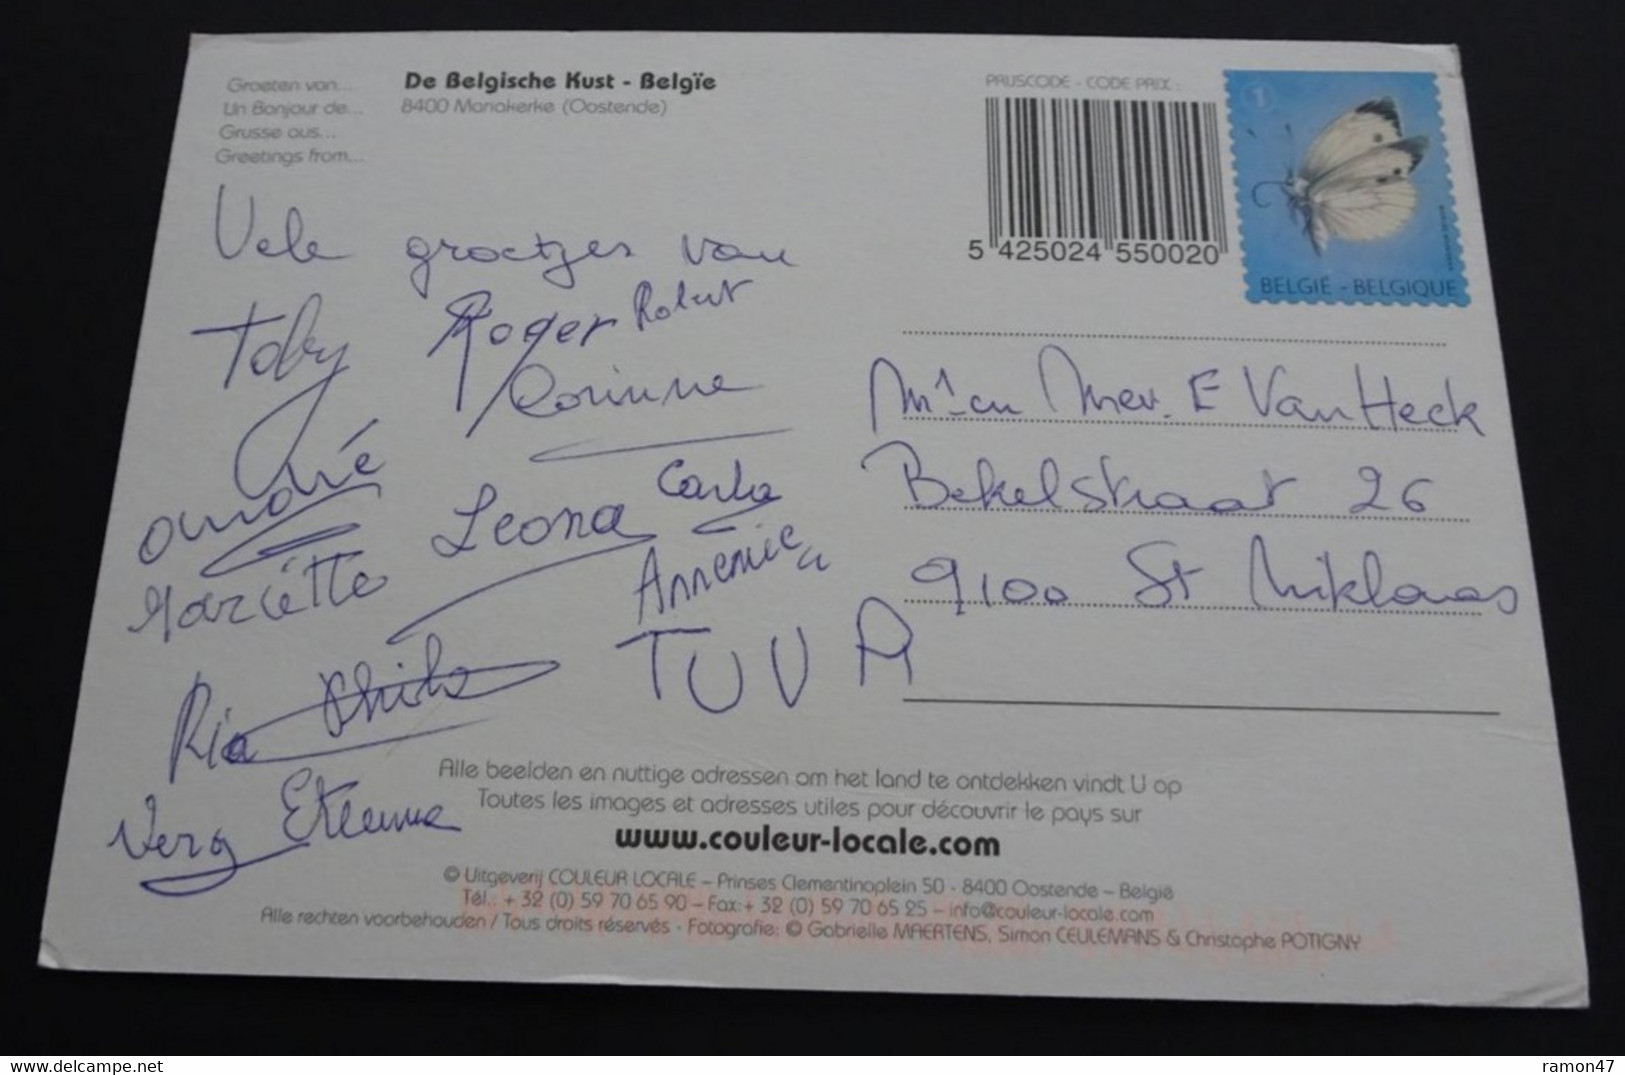 Groeten van...
Un Bonjour de...
Grusse aus...
Greetings from...
De Belgische Kust - Belgïe
8400 Mariakerke (Oostende)
PRIJSCODE - CODE PRIX :
5 425024 550020
1
BELGIE - BELGIQUE
Vele groetjes van
Toby Roger Robert
Corinne
André
Leona Carla
Mariette Annemie
TUVA
Ria
Vera Etienne
Mr en Mevr. E Van Heck
Bekelstraat 26
9100 St Niklaas
Alle beelden en nuttige adressen om het land te ontdekken vindt U op
Toutes les images et adresses utiles pour découvrir le pays sur
www.couleur-locale.com
© Uitgeverij COULEUR LOCALE – Prinses Clementinaplein 50 - 8400 Oostende – België
Tél.: + 32 (0) 59 70 65 90 – Fax:+ 32 (0) 59 70 65 25 – info@couleur-locale.com
Alle rechten voorbehouden / Tous droits réservés - Fotografie: © Gabrielle MAERTENS, Simon CEULEMANS & Christophe POTIGNY
https://www.delcampe.net
ramon47